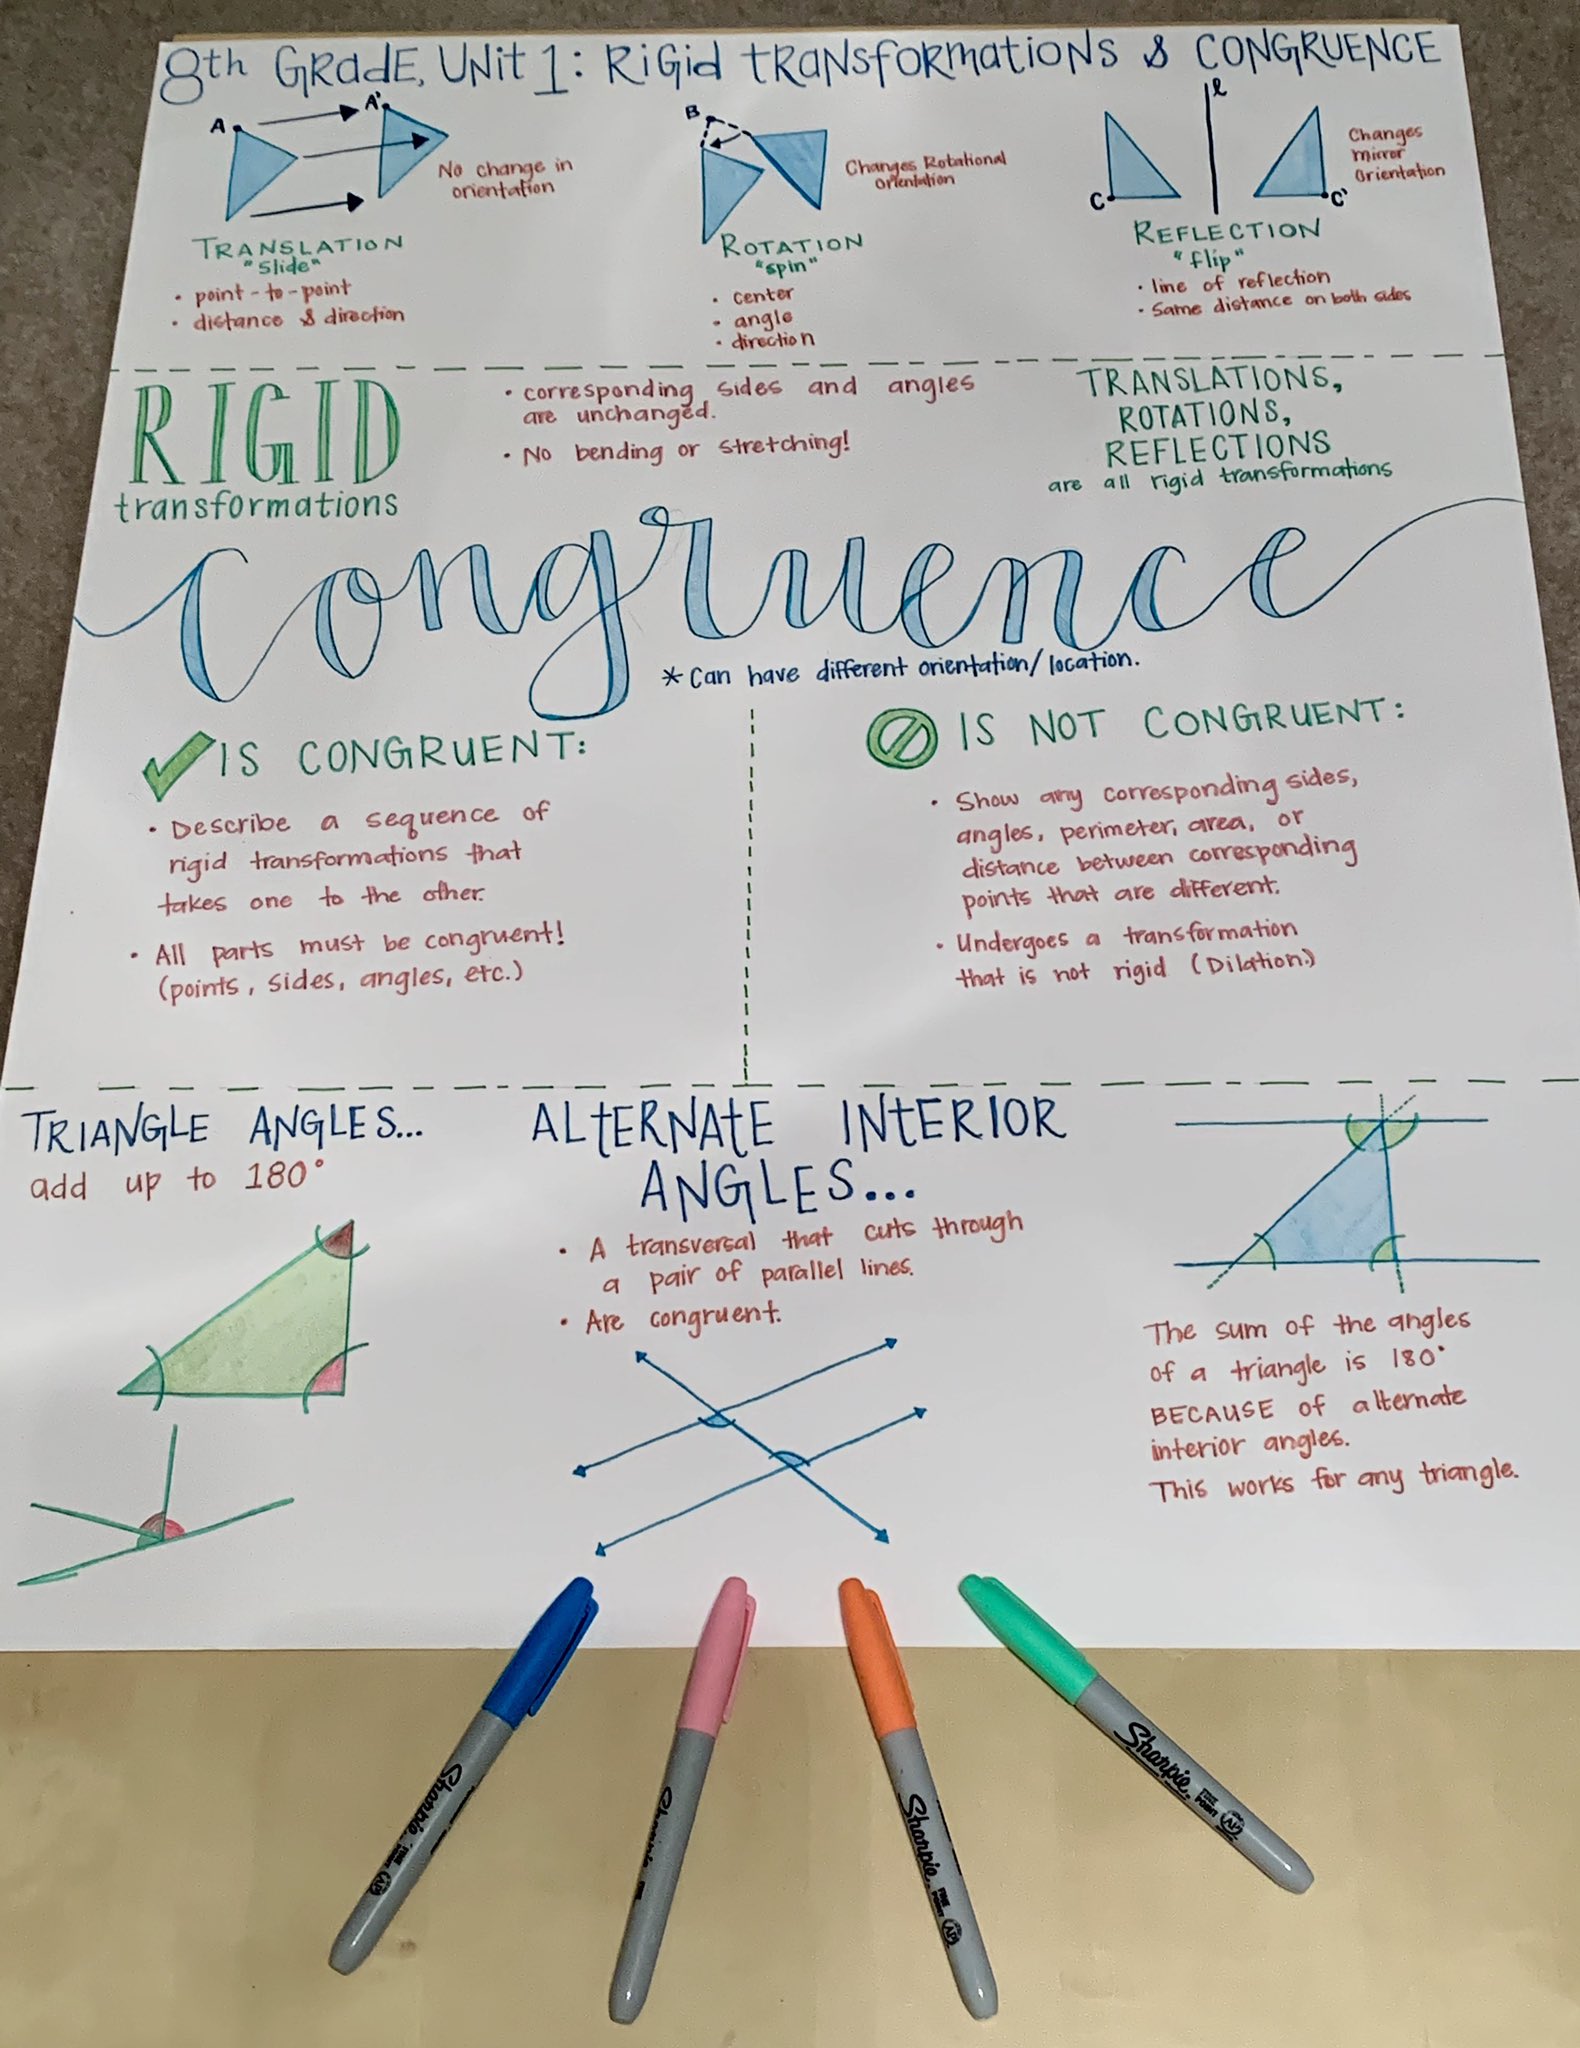 8th GRADE, UNIT 1: RIGID TRANSFORMATIONS & CONGRUENCE
A
A'
No change in
orientation
TRANSLATION
"Slide"
• point-to-point
• distance & direction
B
Changes Rotational
Orientation
ROTATION
"spin"
• center
• angle
• direction
l
C
C'
Changes
mirror
Orientation
REFLECTION
"flip"
• line of reflection
• Same distance on both sides
RIGID
transformations
• corresponding sides and angles
are unchanged.
• No bending or stretching!
TRANSLATIONS,
ROTATIONS,
REFLECTIONS
are all rigid transformations
congruence
* Can have different orientation/location.
IS CONGRUENT:
• Describe a sequence of
rigid transformations that
takes one to the other.
• All parts must be congruent!
(points, sides, angles, etc.)
IS NOT CONGRUENT:
• Show any corresponding sides,
angles, perimeter, area, or
distance between corresponding
points that are different.
• Undergoes a transformation
that is not rigid (Dilation.)
TRIANGLE ANGLES...
add up to 180°
ALTERNATE INTERIOR
ANGLES...
• A transversal that cuts through
a pair of parallel lines.
• Are congruent.
The sum of the angles
of a triangle is 180°
BECAUSE of alternate
interior angles.
This works for any triangle.
Sharpie. FINE POINT AP
Sharpie. FINE
Sharpie. FINE POINT AP
Sharpie. FINE POINT AP